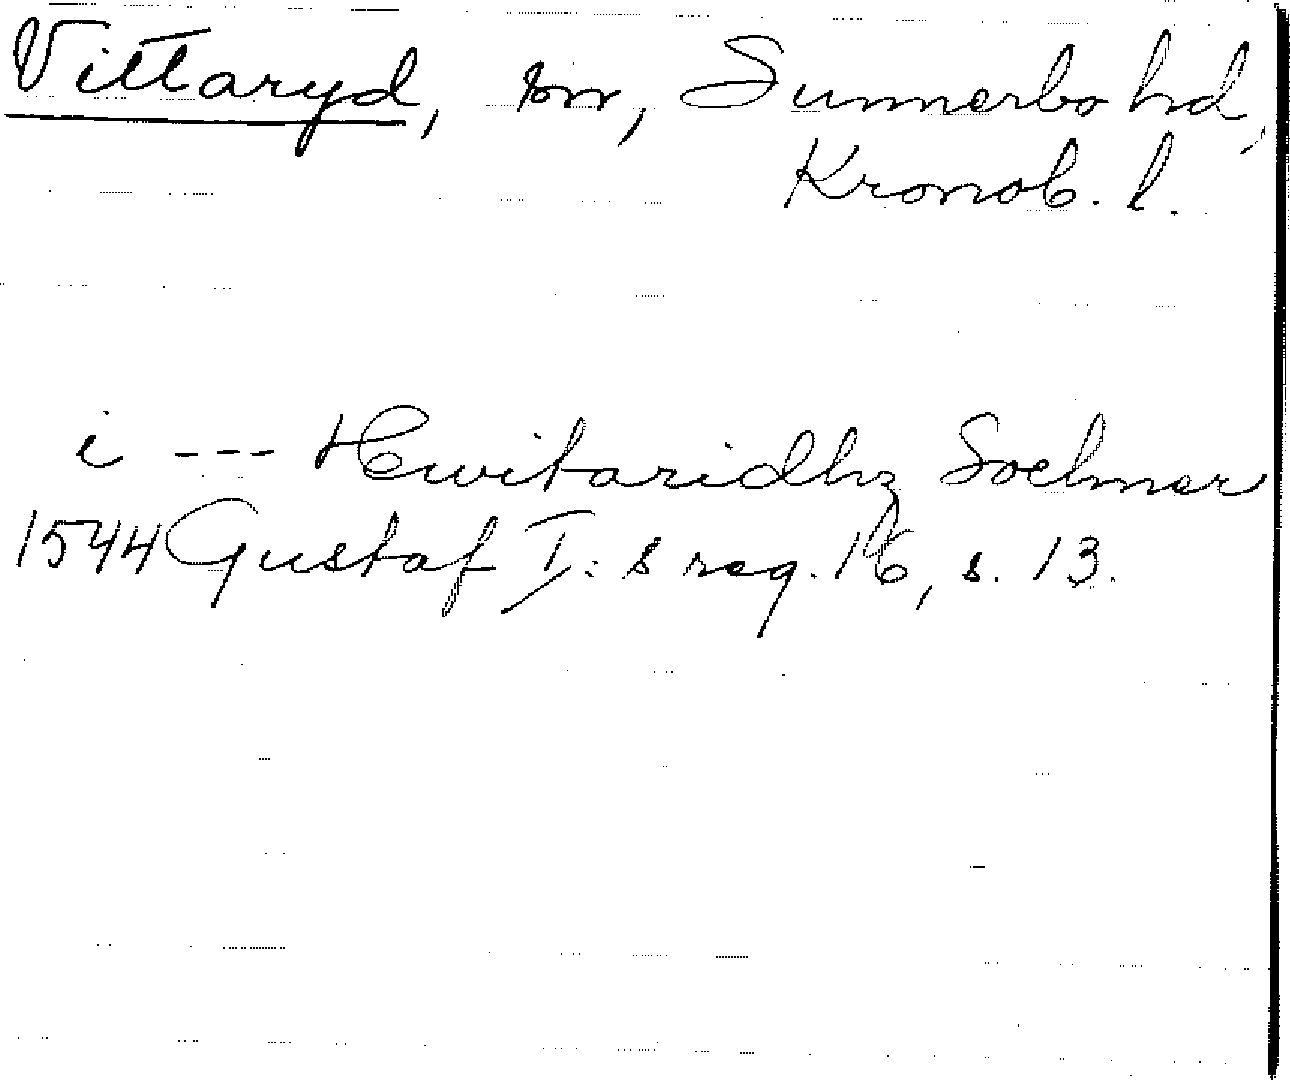 Vittaryd, sn, Sunnerbo hd,
Kronob. l.
i --- Hwitaridhz Soehnar
1544 Gustaf I: s reg. 16, s. 13.